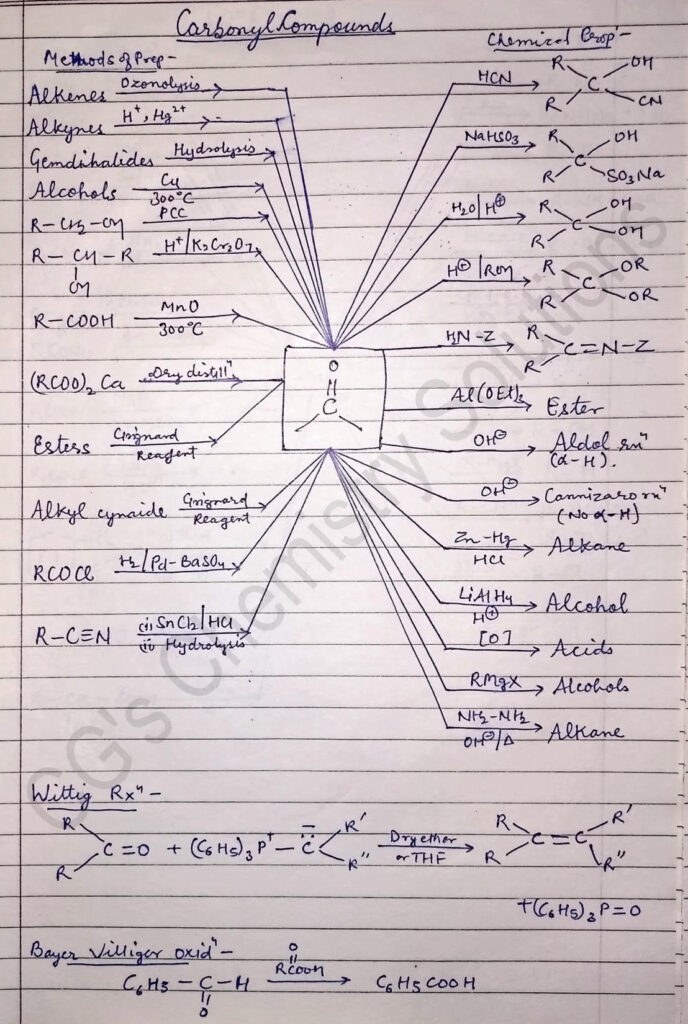 Carbonyl Compounds
Methods of Prep -
Alkenes Ozonolysis
Alkynes H⁺, Hg²⁺
Gemdihalides Hydrolysis
Alcohols Cu 300°C
R-CH₂-OH PCC
R-CH-R H⁺/K₂Cr₂O₇
OH
R-COOH MnO 300°C
(RCOO)₂Ca Dry distillⁿ
Esters Grignard Reagent
Alkyl cynaide Grignard Reagent
RCOCl H₂/Pd-BaSO₄
R-C≡N (i) SnCl₂/HCl
(ii) Hydrolysis
O
C
Chemical Prop -
HCN R R C OH CN
NaHSO₃ R R C OH SO₃Na
H₂O/H⊕ R R C OH OH
H⊕/ROH R R C OR OR
H₂N-Z R R C=N-Z
Al(OEt)₃ Ester
OH⊖ Aldol rxⁿ
(α-H).
OH⊖ Cannizaro rxⁿ
(No α-H)
Zn-Hg HCl Alkane
LiAlH₄ H⊕ Alcohol
[O] Acids
RMgX Alcohols
NH₂-NH₂ OH⊖/Δ Alkane
Wittig Rxⁿ -
R R C=O + (C₆H₅)₃P⁺-C̄ R' R" Dry ether or THF R R C=C R' R"
+(C₆H₅)₃P=O
Bayer Villiger oxidⁿ -
C₆H₅-C-H RCOOH C₆H₅COOH
O O
CG's Chemistry Solutions